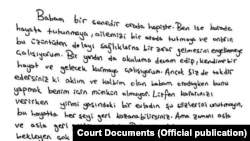 Babam bir senedir orada hapiste. Ben ise burada
hayata tutunmaya, ailemizi bir arada tutmaya ve onların
bu üzüntüden dolayı sağlıklarına bir zarar gelmesini engellemeye
çalışıyorum. Bir yandan da okuluma devam edip, kendime bir
hayat ve gelecek kurmaya çalışıyorum. Ancak siz de takdir
edersiniz ki aklım ve kalbim olan babam oradayken bunu
yapmak benim için mümkün olmuyor. Lütfen kararınızı
verirken yirmi yaşındaki bir evladın şu sözlerini unutmayın,
bu hayatta her şeyi geri kazanabilirsiniz. Ama zamanı asla
ve asla geri
bekleyen
Court Documents (Official publication)